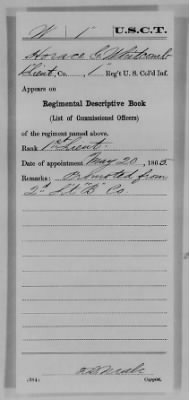 W 1 U.S.C.T.
Horace G. Whitcomb
Lieut, Co. , 1" Reg't U. S. Col'd Inf.
Appears on
Regimental Descriptive Book
(List of Commissioned Officers)
of the regiment named above.
Rank 1st Lieut.
Date of appointment May 20, 1865
Remarks: Promoted from
2d Lt "B" Co.
(384) Copyist.